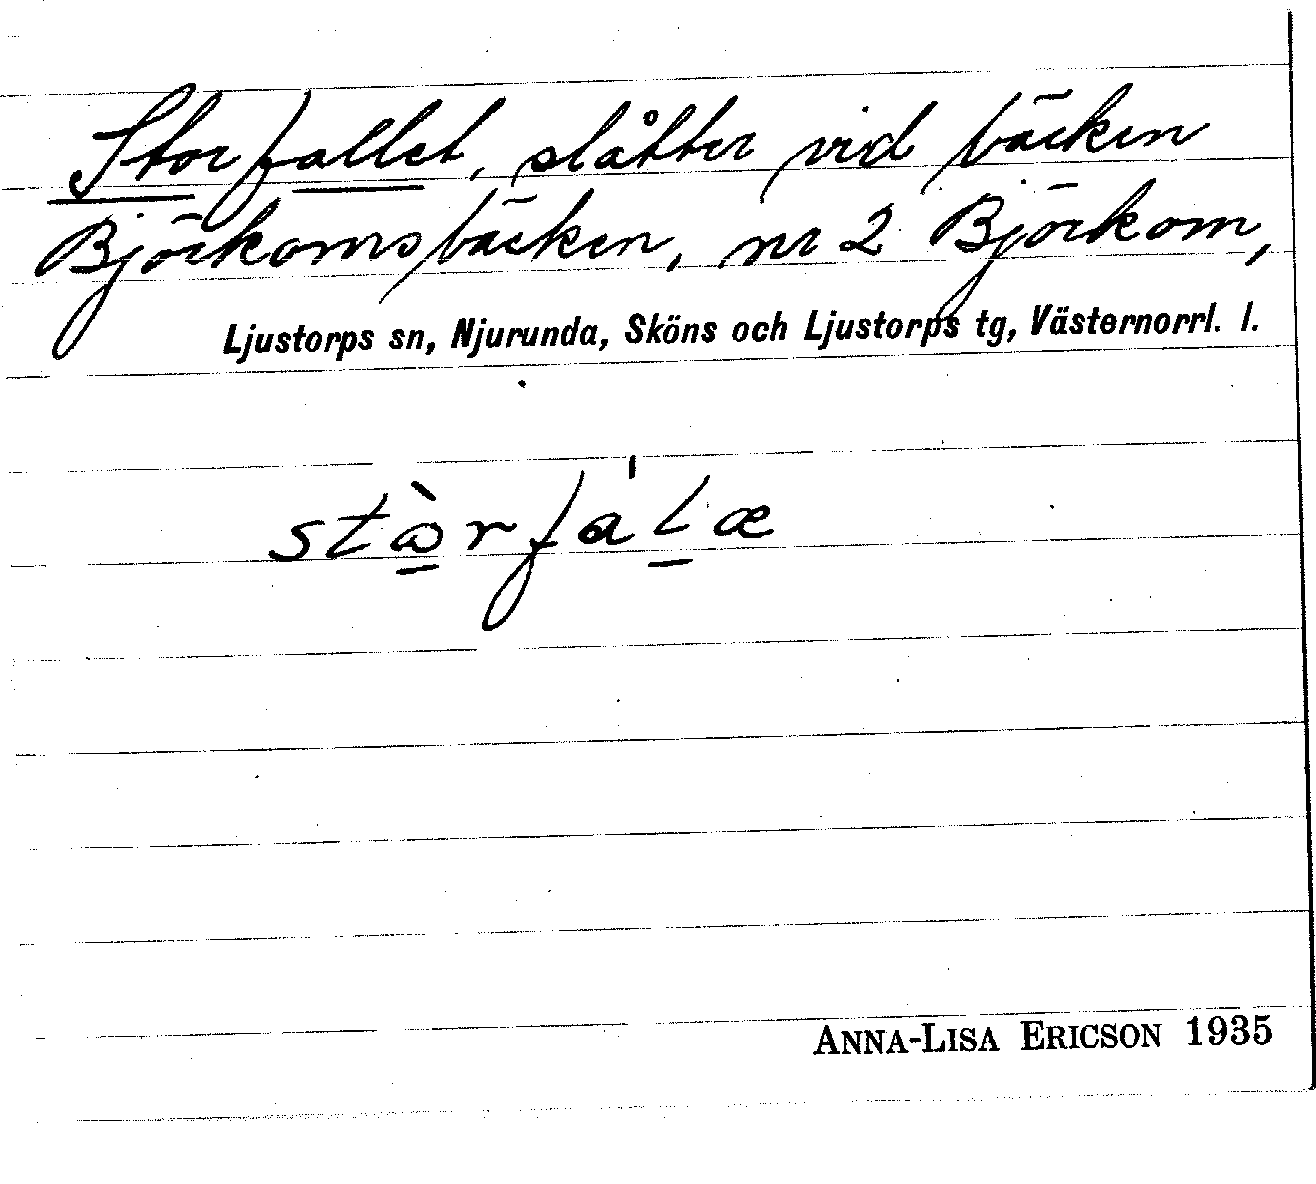 Storfallet, slåtter vid bäcken
Björkomsbäcken, nr 2 Björkom,
Ljustorps sn, Njurunda, Sköns och Ljustorps tg, Västernorrl. l.
stὼ̲rfa'l̲æ
ANNA-LISA ERICSON 1935